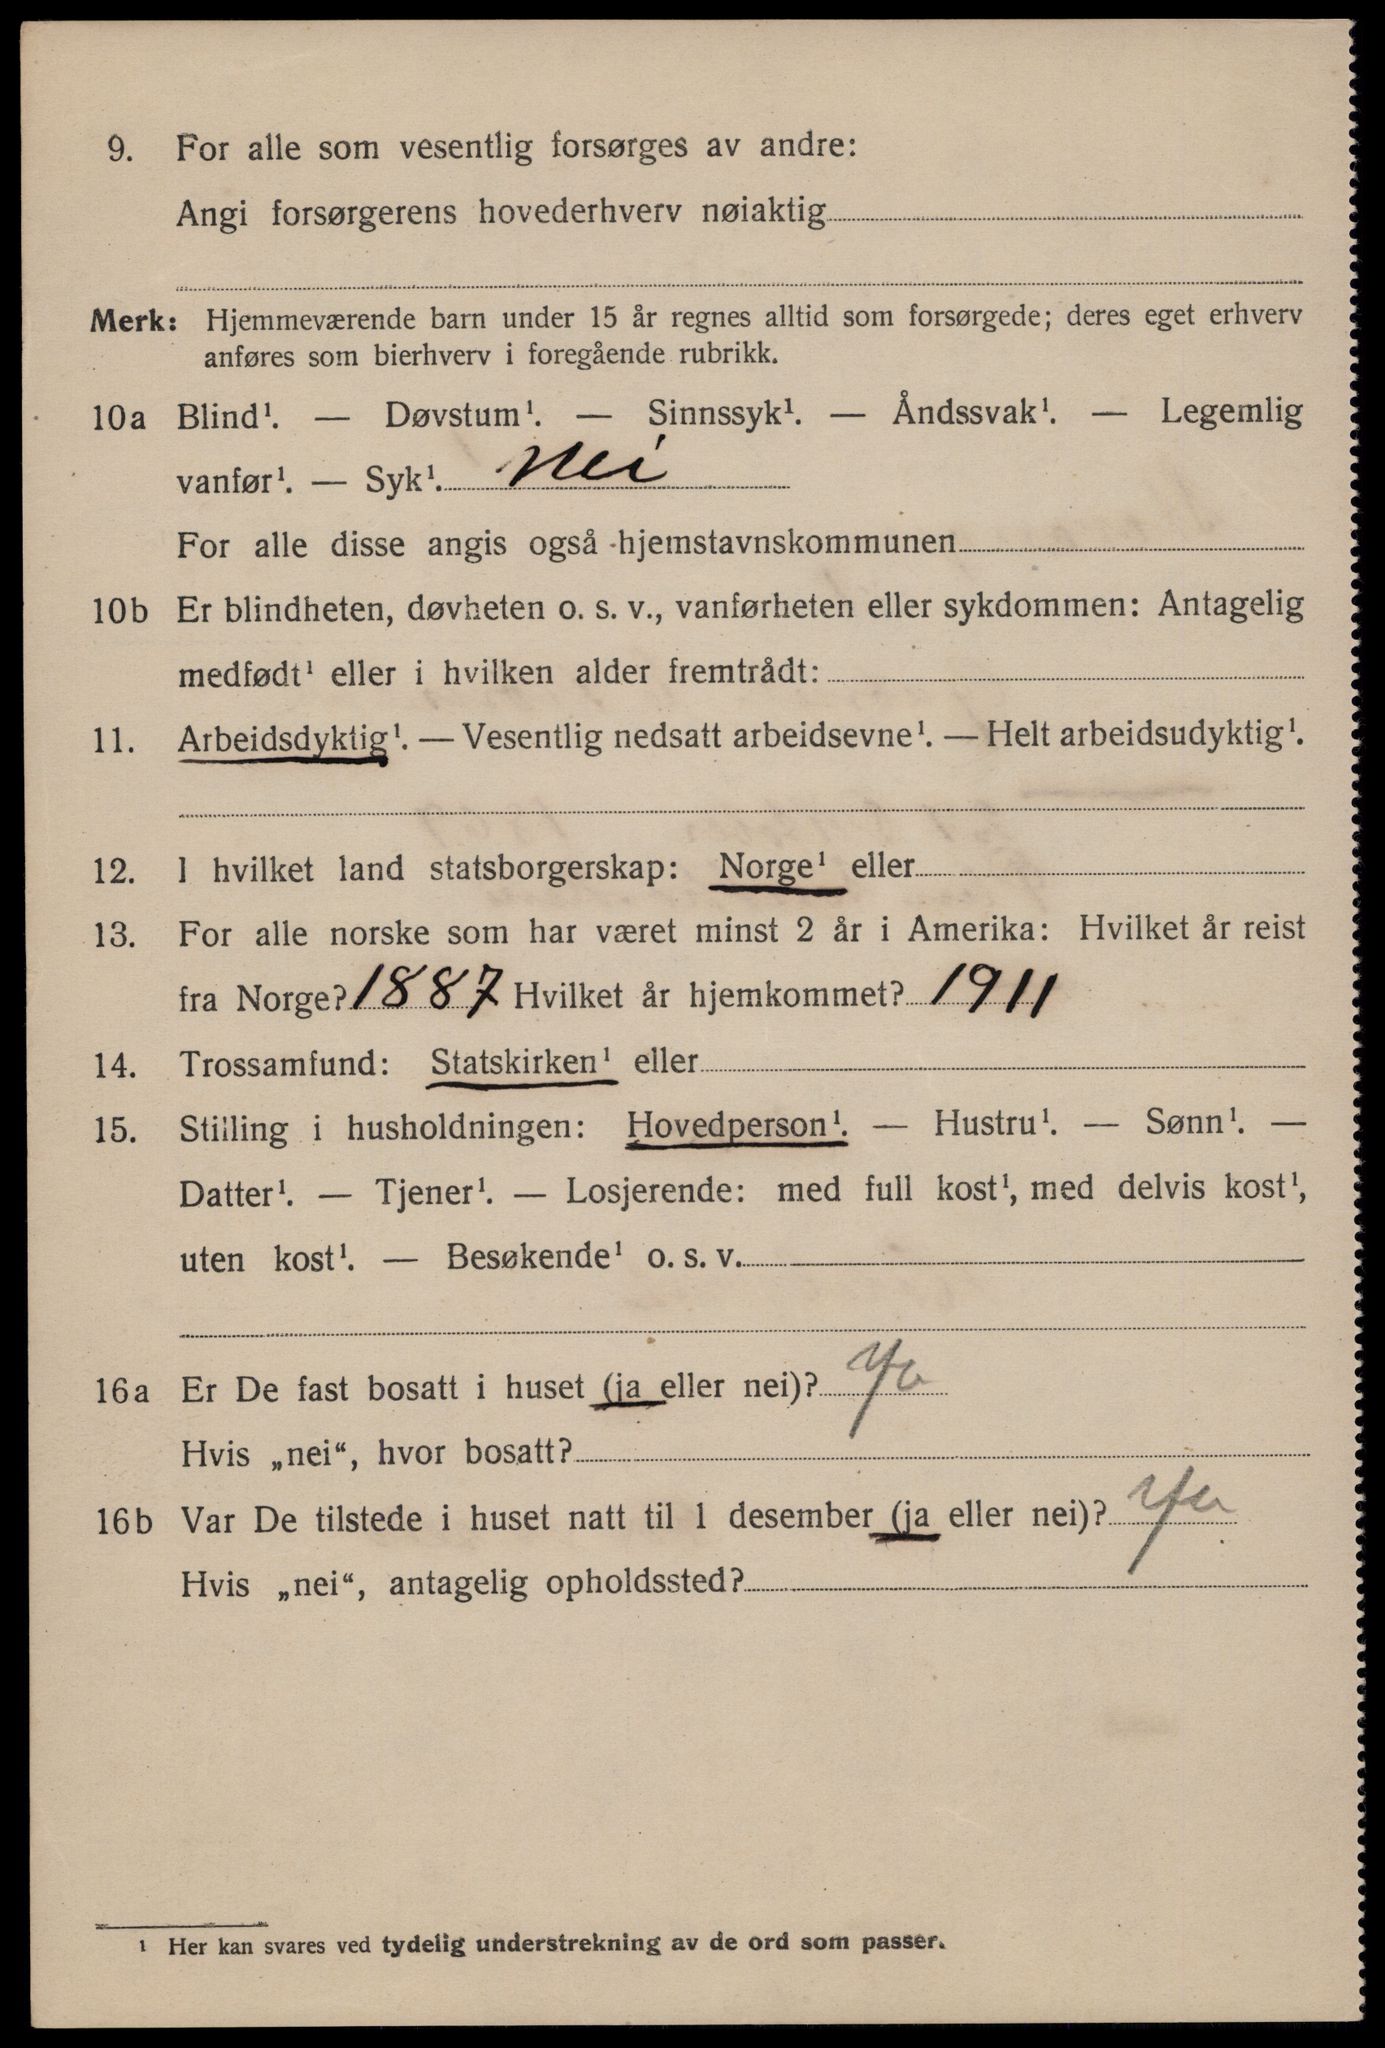 9. For alle som vesentlig forsørges av andre:
Angi forsørgerens hovederhverv nøiaktig
Merk: Hjemmeværende barn under 15 år regnes alltid som forsørgede; deres eget erhverv
anføres som bierhverv i foregående rubrikk.
10a Blind¹. — Døvstum¹. — Sinnssyk¹. — Åndssvak¹. — Legemlig
vanfør¹. — Syk¹. Nei
For alle disse angis også hjemstavnskommunen
10b Er blindheten, døvheten o. s. v., vanførheten eller sykdommen: Antagelig
medfødt¹ eller i hvilken alder fremtrådt:
11. Arbeidsdyktig¹. — Vesentlig nedsatt arbeidsevne¹. — Helt arbeidsudyktig¹.
12. I hvilket land statsborgerskap: Norge¹ eller
13. For alle norske som har været minst 2 år i Amerika: Hvilket år reist
fra Norge? 1887 Hvilket år hjemkommet? 1911
14. Trossamfund: Statskirken¹ eller
15. Stilling i husholdningen: Hovedperson¹. — Hustru¹. — Sønn¹. —
Datter¹. — Tjener¹. — Losjerende: med full kost¹, med delvis kost¹,
uten kost¹. — Besøkende¹ o. s. v.
16a Er De fast bosatt i huset (ja eller nei)? Ja
Hvis „nei“, hvor bosatt?
16b Var De tilstede i huset natt til 1 desember (ja eller nei)? Ja
Hvis „nei“, antagelig opholdssted?
¹ Her kan svares ved tydelig understrekning av de ord som passer.